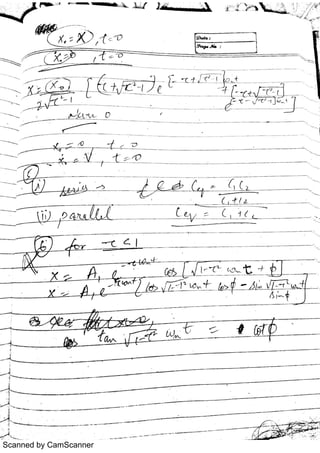 Date :
Page No :
x₁ = X₀ , t = 0
ẋ = 0 , t = 0
x = (X₀) / 2√τ²-1 [ (τ + √τ²-1) e^[-τ + √τ²-1]ωnt + [-τ + √τ²-1] e^[-τ - √τ²-1]ωnt ]
x₁ = 0 , t = 0
ẋ₁ = V , t = 0
5
i) series → Ceq = C₁C₂ / C₁+C₂
ii) parallel Ceq = C₁+C₂
6 for τ < 1
x = A₁ e^-τωnt cos [√1-τ² ωnt + φ]
x = A₁ e^-τωnt [cos √1-τ² ωnt cosφ - sin √1-τ² ωnt sinφ]
tan √1-τ² ωnt = cotφ
Scanned by CamScanner